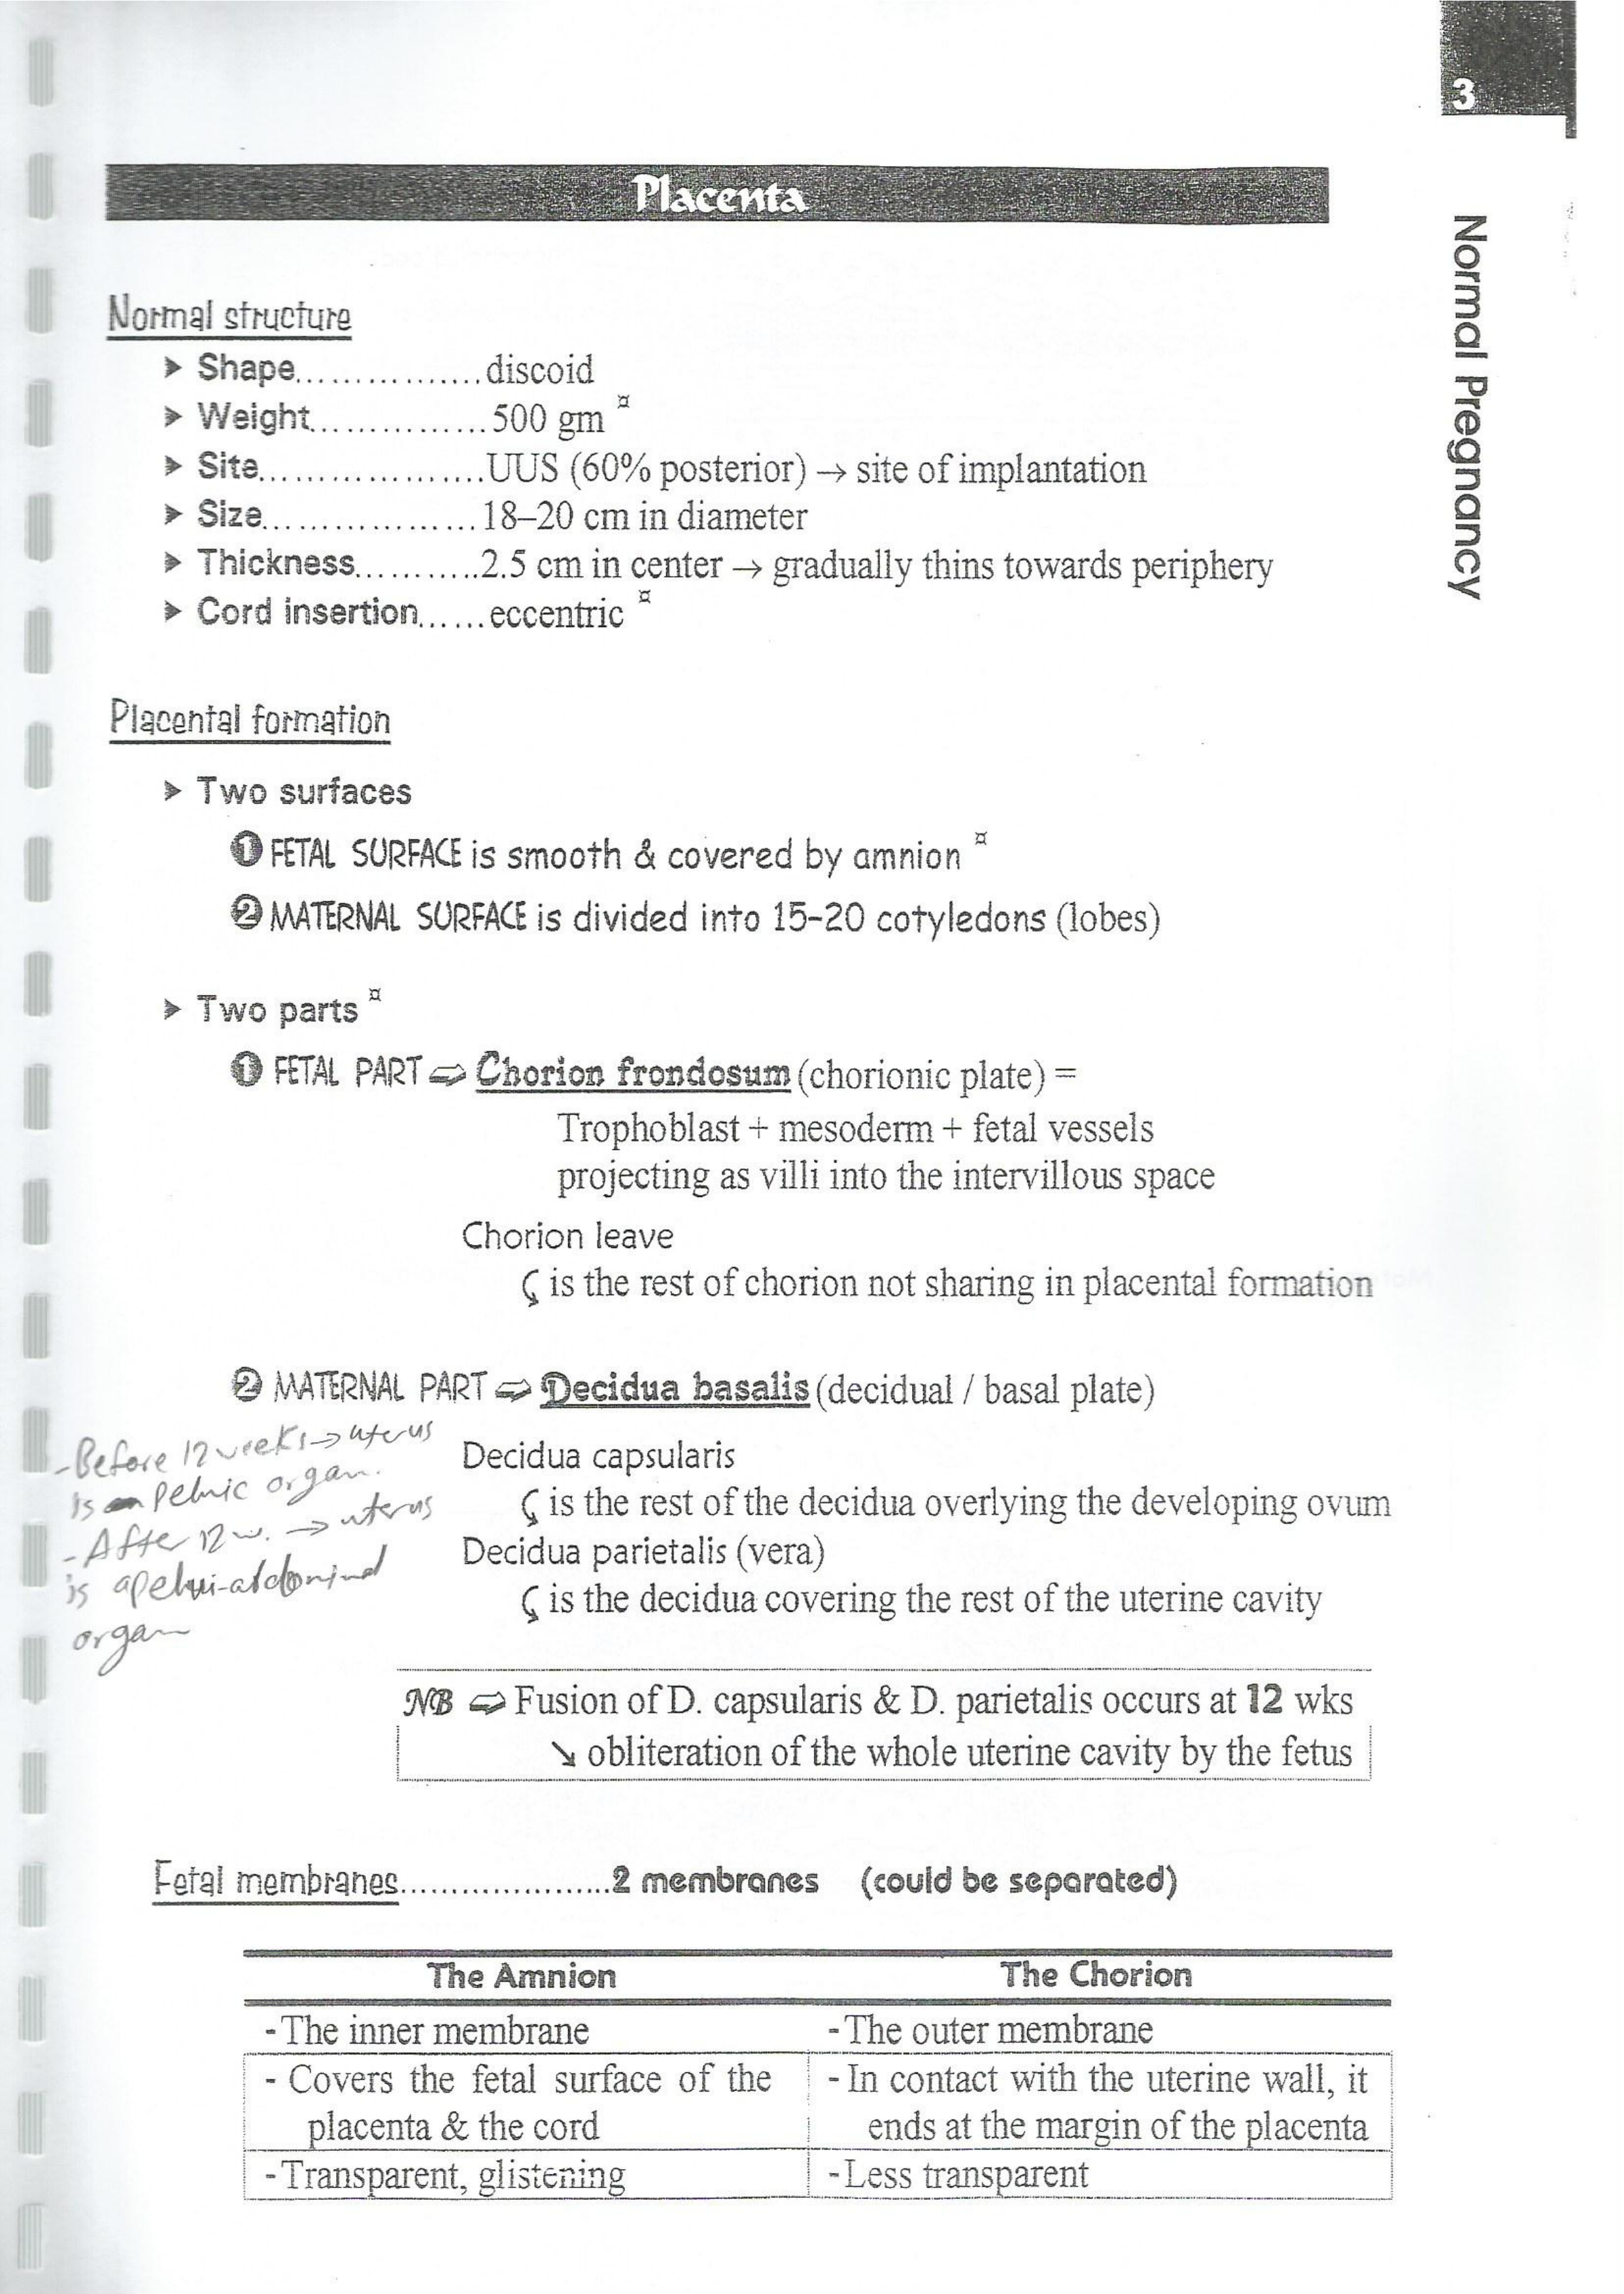 3
Normal Pregnancy
Placenta
Normal structure
➤ Shape................discoid
➤ Weight...............500 gm ¤
➤ Site...................UUS (60% posterior) → site of implantation
➤ Size..................18–20 cm in diameter
➤ Thickness...........2.5 cm in center → gradually thins towards periphery
➤ Cord insertion......eccentric ¤
Placental formation
➤ Two surfaces
❶ FETAL SURFACE is smooth & covered by amnion ¤
❷ MATERNAL SURFACE is divided into 15-20 cotyledons (lobes)
➤ Two parts ¤
❶ FETAL PART ⇨ Chorion frondosum (chorionic plate) =
Trophoblast + mesoderm + fetal vessels
projecting as villi into the intervillous space
Chorion leave
⤹ is the rest of chorion not sharing in placental formation
❷ MATERNAL PART ⇨ Decidua basalis (decidual / basal plate)
Decidua capsularis
⤹ is the rest of the decidua overlying the developing ovum
Decidua parietalis (vera)
⤹ is the decidua covering the rest of the uterine cavity
- Before 12 weeks → uterus
is pelvic organ.
- After 12 w. → uterus
is a pelvi-abdominal
organ
NB ⇨ Fusion of D. capsularis & D. parietalis occurs at 12 wks
↘ obliteration of the whole uterine cavity by the fetus
Fetal membranes.....................2 membranes (could be separated)
The Amnion The Chorion
- The inner membrane - The outer membrane
- Covers the fetal surface of the - In contact with the uterine wall, it
placenta & the cord ends at the margin of the placenta
- Transparent, glistening - Less transparent